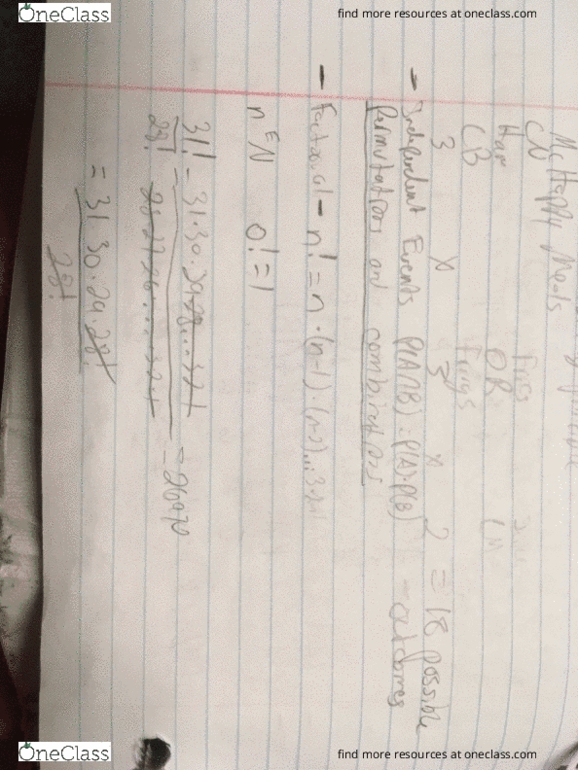 OneClass
find more resources at oneclass.com
McHappy Meals
CN Fries
Ham OR
CB Rings
3 x 3 x 2 = 18 possible outcomes
- Independent Events P(A∩B) = P(A)·P(B)
Permutations and combinations
- Factorial - n! = n·(n-1)·(n-2)...3·2·1
n∈N 0! = 1
31!/28! = 31·30·29·28...3·2·1 / 28·27·26....3·2·1 = 26970
= 31·30·29·28! / 28!
OneClass
find more resources at oneclass.com